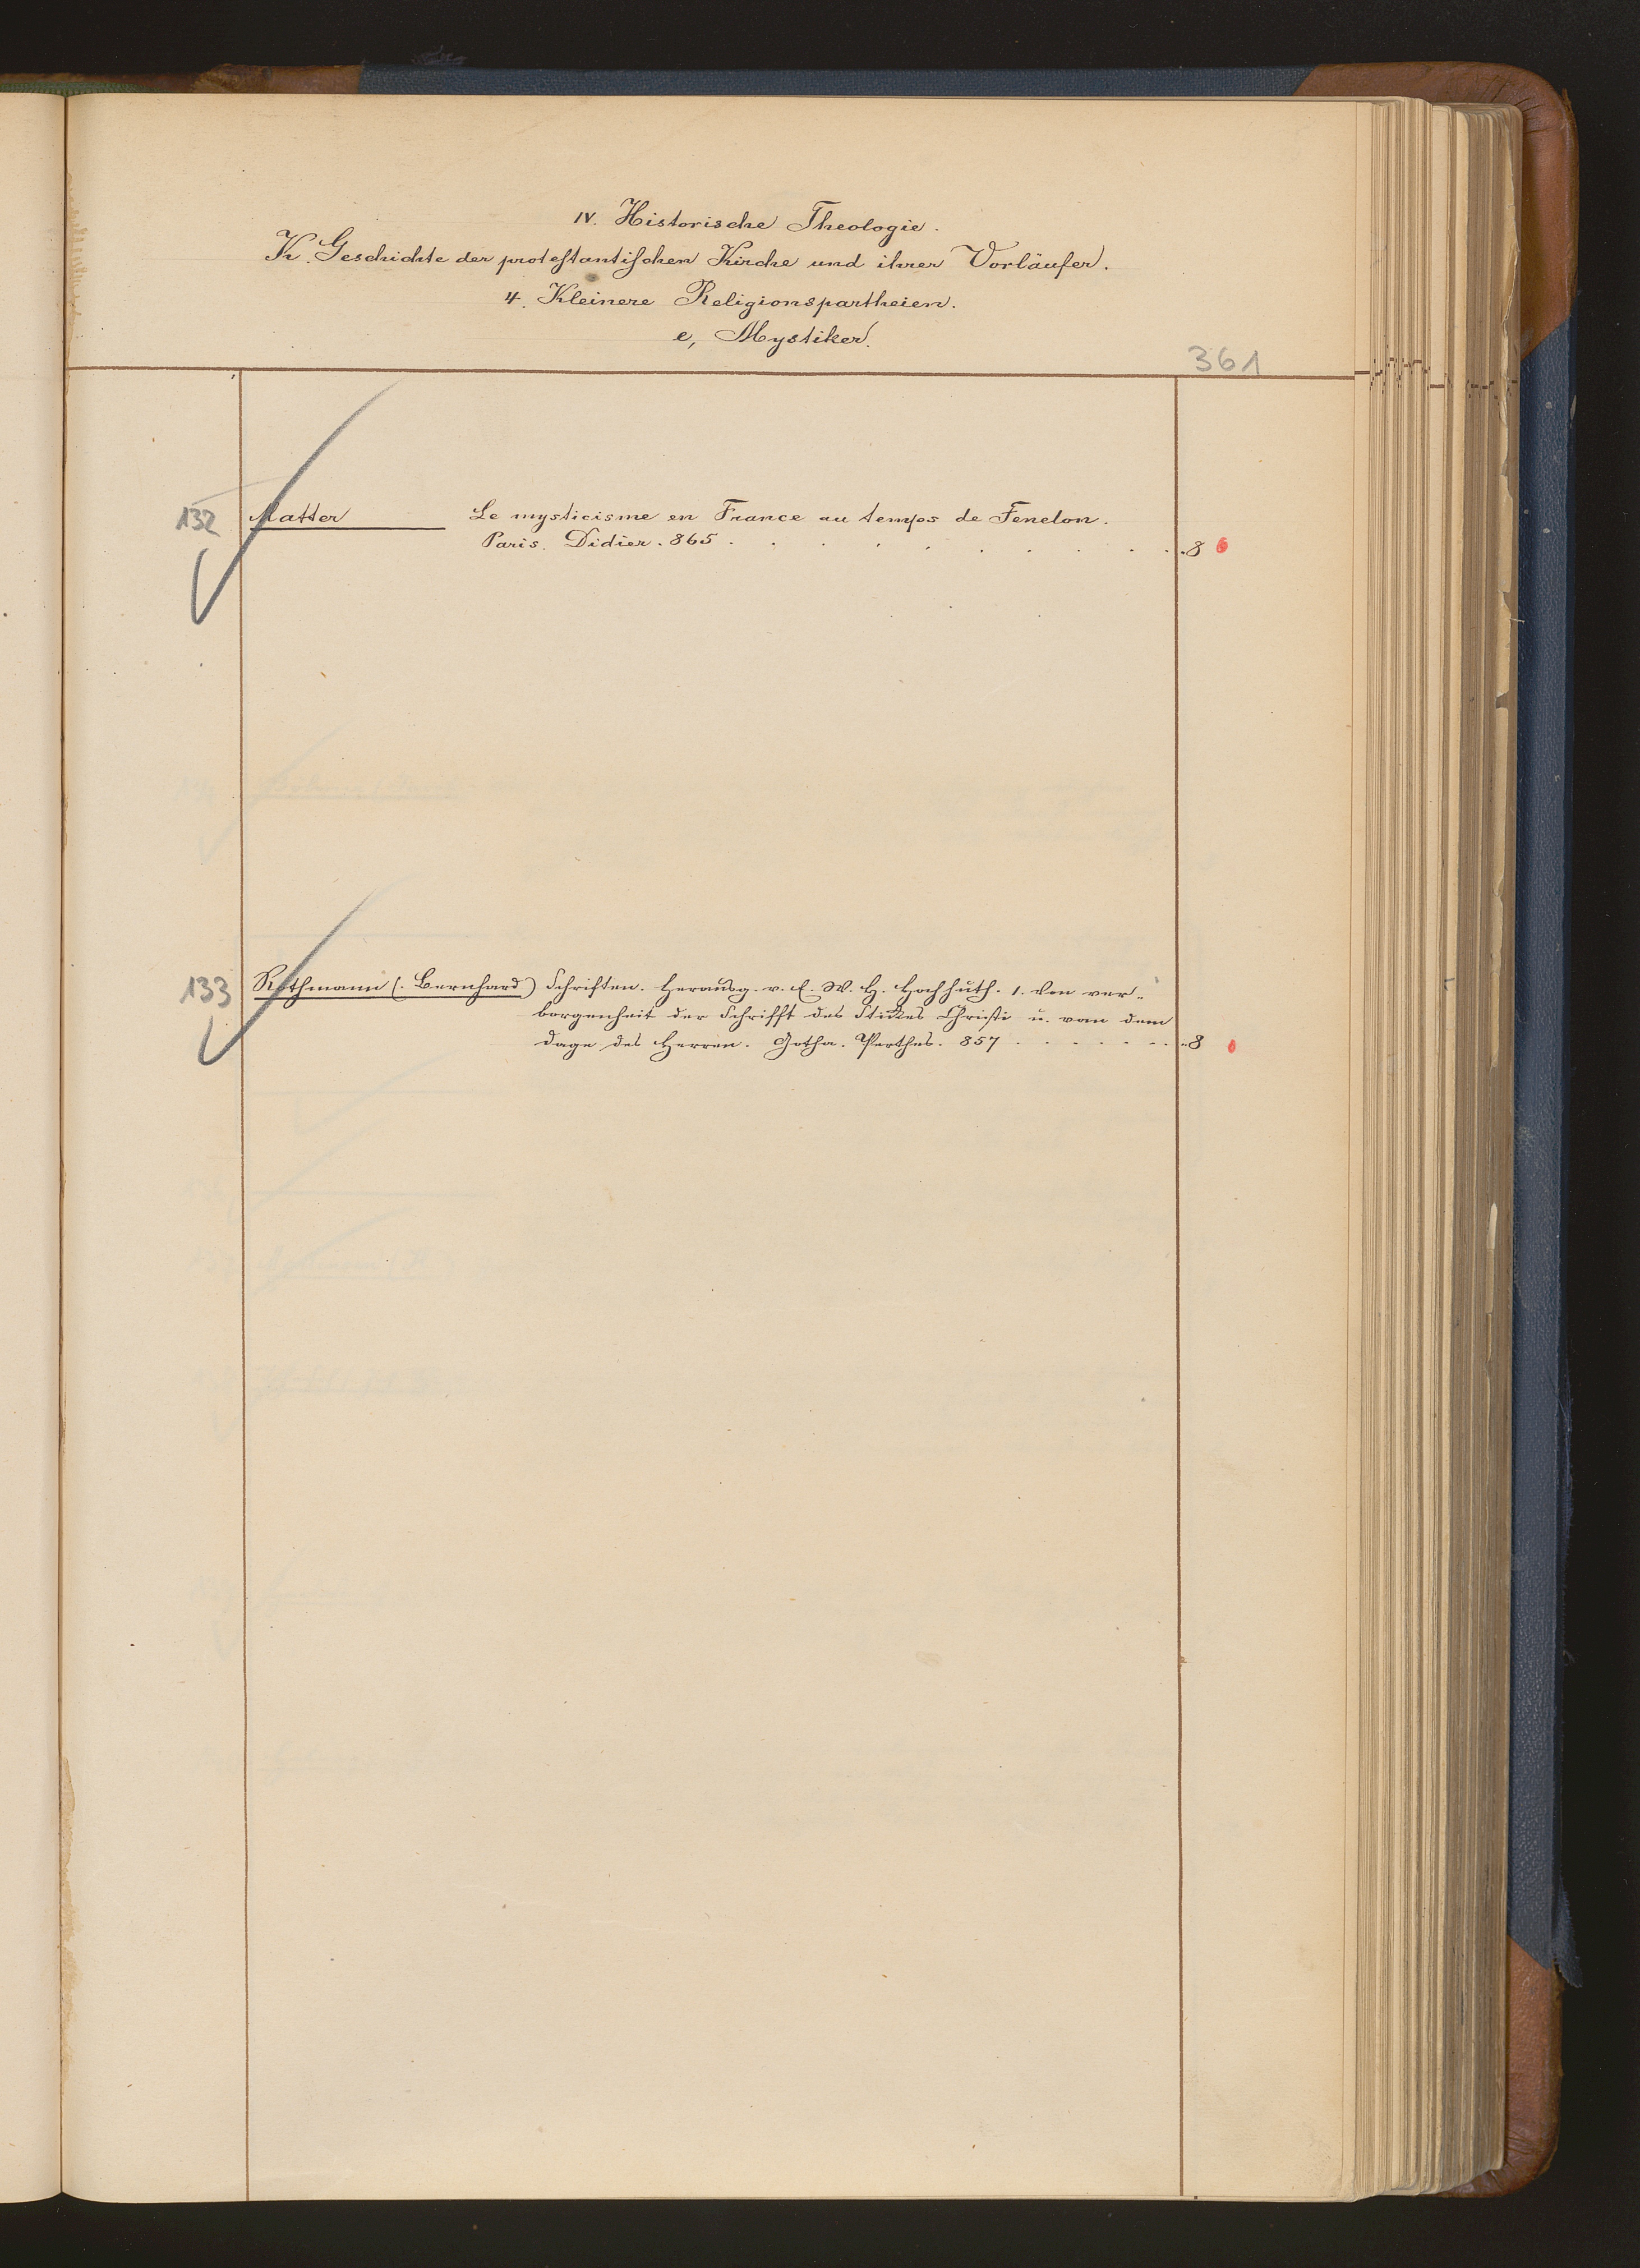 IV. Historische Theologie.
K. Geschichte der protestantischen Kirche und ihrer Vorläufer.
4. Kleinere Religionspartheien.
e, Mystiker.
361
132 Matter Le mysticisme en France au temps de Fenelon.
Paris. Didier. 865 . . . . . . . . . . 8
133 Rothmann (. Bernhard) Schriften. Herausg. v. C. W. H. Hochhuth. 1. Von ver-
borgenheit der Schrifft des Rickes Christi u. van dem
dage des Herren. Gotha. Perthes. 857 . . . . . . . . 8